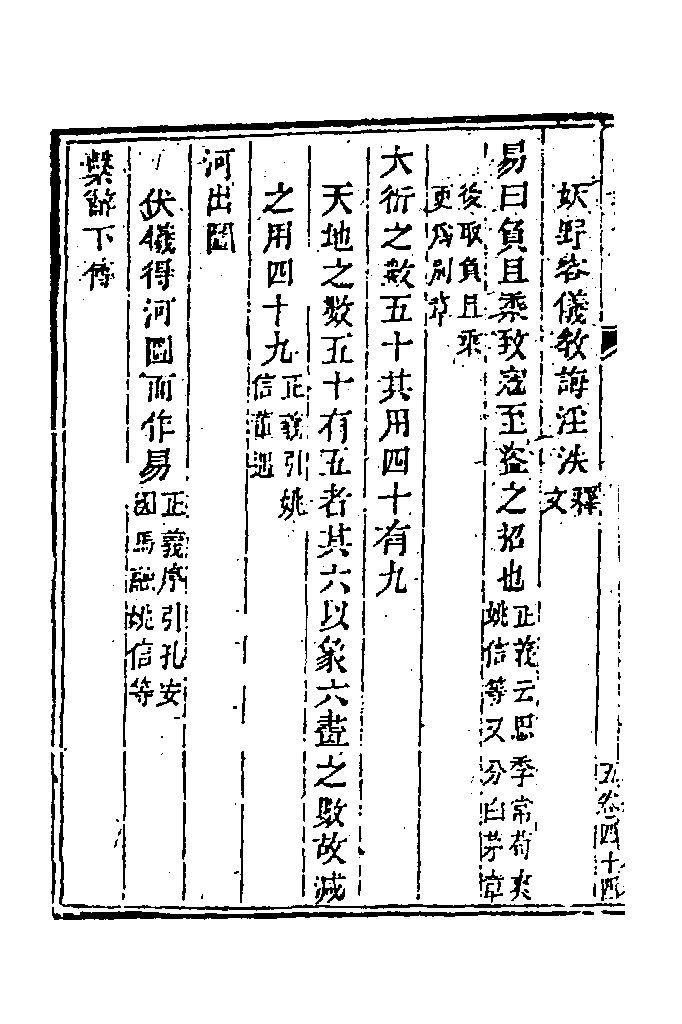 妖野容儀教誨淫泆釋文
易曰負且乘致寇至盜之招也正義云周季常荀爽姚信等又分白茅章
後取負且乘更爲別章
大衍之數五十其用四十有九
天地之數五十有五者其六以象六畫之數故減
之用四十九正義引姚信董遇
河出圖
伏儀得河圖而作易正義序引孔安國馬融姚信等
繫辭下傳
五卷四十四